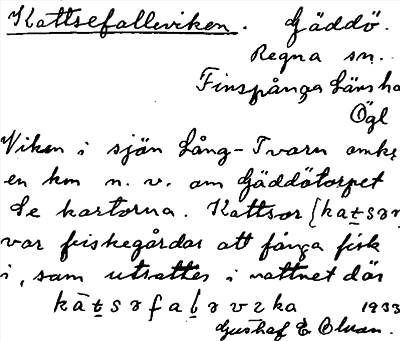 Kattsefalleviken. Gäddö.
Regna sn.
Finspånga Länsha
Ögl
Viken i sjön Lång-Tvarn omkr
en km n. v. om Gäddötorpet
Se kartorna. Kattsor [katsər
var fiskegårdar att fånga fisk
i, som utsattes i vattnet där
1933
Gustaf E Olson.